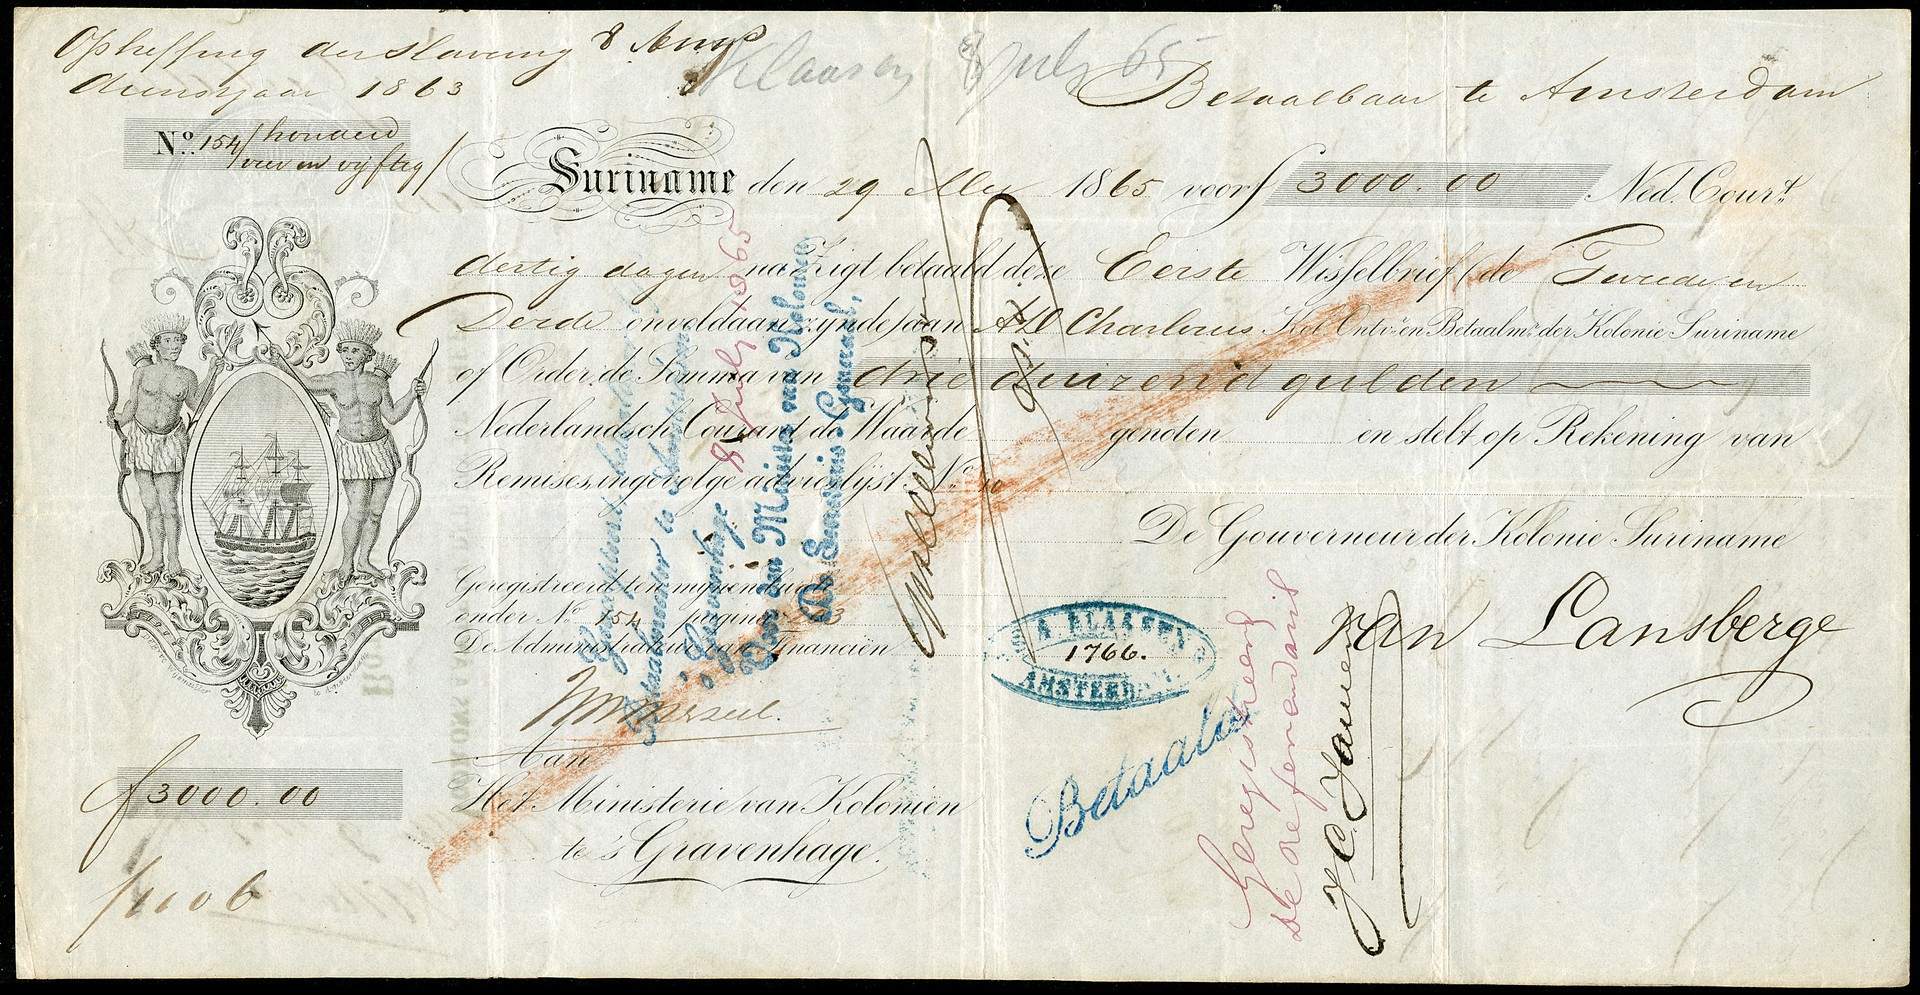 Opheffing der slaverny 8
dienstjaar 1863
Klaasen 8 July 65
Betaalbaar te Amsterdam
No. 154/honderd
vier en vyftig/
Suriname den 29 Mei 1865 voor ƒ 3000.00 Ned. Court.
dertig dagen na Zigt betaald deze Eerste Wisselbrief (de Tweede en
Derde onvoldaan zynde) aan Kol. Ontv. en Betaalmr. der Kolonie Suriname
of Order, de Somma van drie duizend gulden
Nederlandsch Courant de Waarde genoten en stelt op Rekening van
Remises, ingevolge advieslyst No. 10
De Gouverneur der Kolonie Suriname
van Lansberge
Geregistreerd ten mynen
onder No. 154 pagina
De Administrateur van Financiën
Aan
Het Ministerie van Koloniën
te 's Gravenhage.
ƒ 3000.00
Geaccepteerd, betaalbaar
Betaalmeester te Amsterdam
's Gravenhage 8 July 1865
Voor den Minister van Koloniën
De Secretaris Generaal,
KLAASEN
1766.
AMSTERDAM.
Betaald
Geregistreerd
De Referendaris